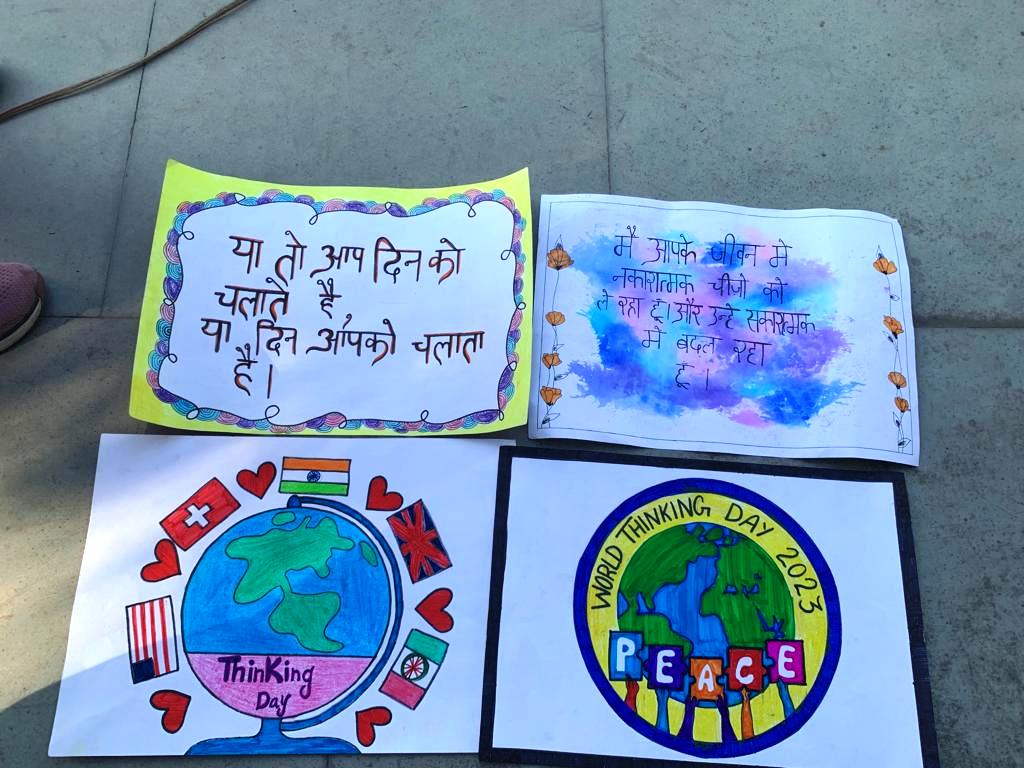 या तो आप दिन को
चलाते है,
या दिन आपको चलाता
है।
मै आपके जीवन मे
नकारात्मक चीजो को
ले रहा हूं। और उन्हे सकारात्मक
मे बदल रहा
हूं।
Thinking
Day
WORLD THINKING DAY 2023
PEACE